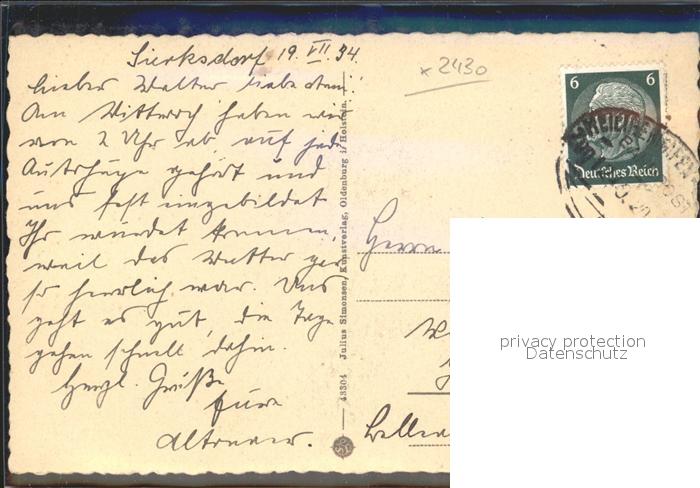 Sierksdorf 19. VII. 34.
× 2430
Lieber Walter liebe
Am Mittwoch haben wir
von 2 Uhr ab auf jede
Autohupe gehört und
uns fest eingebildet
Ihr würdet kommen,
weil das Wetter gar
so herrlich war. Uns
geht es gut, die Tage
gehen schnell dahin.
Herzl. Grüße
Eure
43304 Julius Simonsen, Kunstverlag, Oldenburg i/Holstein.
6 6
Deutsches Reich
Herrn
privacy protection
Datenschutz